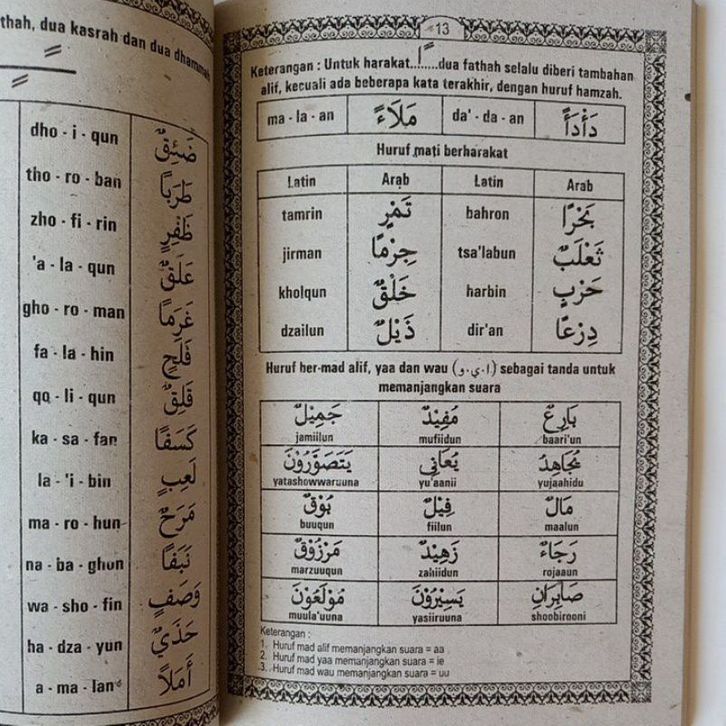 thah, dua kasrah dan dua dhammah
dho - i - qun ضَئِقٌ
tho - ro - ban طَرَبًا
zho - fi - rin ظَفِرٍ
'a - la - qun عَلَقٌ
gho - ro - man غَرَمًا
fa - la - hin فَلَحٍ
qo - li - qun قَلِقٌ
ka - sa - fan كَسَفًا
la - 'i - bin لَعِبٍ
ma - ro - hun مَرَحٌ
na - ba - ghun نَبَفًا
wa - sho - fin وَصَفٍ
ha - dza - yun حَذَيٌ
a - ma - lan أَمَلاً
13
Keterangan : Untuk harakat..اً.....dua fathah selalu diberi tambahan
alif, kecuali ada beberapa kata terakhir, dengan huruf hamzah.
ma - la - an مَلَاءً da' - da - an دَأْدَأً
Huruf mati berharakat
Latin Arab Latin Arab
tamrin تَمْرٍ bahron بَحْرًا
jirman جِرْمًا tsa'labun ثَعْلَبٌ
kholqun خَلْقٌ harbin حَرْبٍ
dzailun ذَيْلٌ dir'an دِرْعًا
Huruf ber-mad alif, yaa dan wau (ا.ي.و) sebagai tanda untuk
memanjangkan suara
جَمِيْلٌ مُفِيْدٌ بَارِعٌ
jamiilun mufiidun baari'un
يَتَصَوَّرُوْنَ يُعَانِي يُجَاهِدُ
yatashowwaruuna yu'aanii yujaahidu
بُوْقٌ فِيْلٌ مَالٌ
buuqun fiilun maalun
مَرْزُوْقٌ زَهِيْدٌ رَجَاءٌ
marzuuqun zahiidun rojaaun
مُوْلَعُوْنَ يَسِيْرُوْنَ صَابِرَانِ
muula'uuna yasiiruuna shoobirooni
Keterangan :
1. Huruf mad alif memanjangkan suara = aa
2. Huruf mad yaa memanjangkan suara = ie
3. Huruf mad wau memanjangkan suara = uu